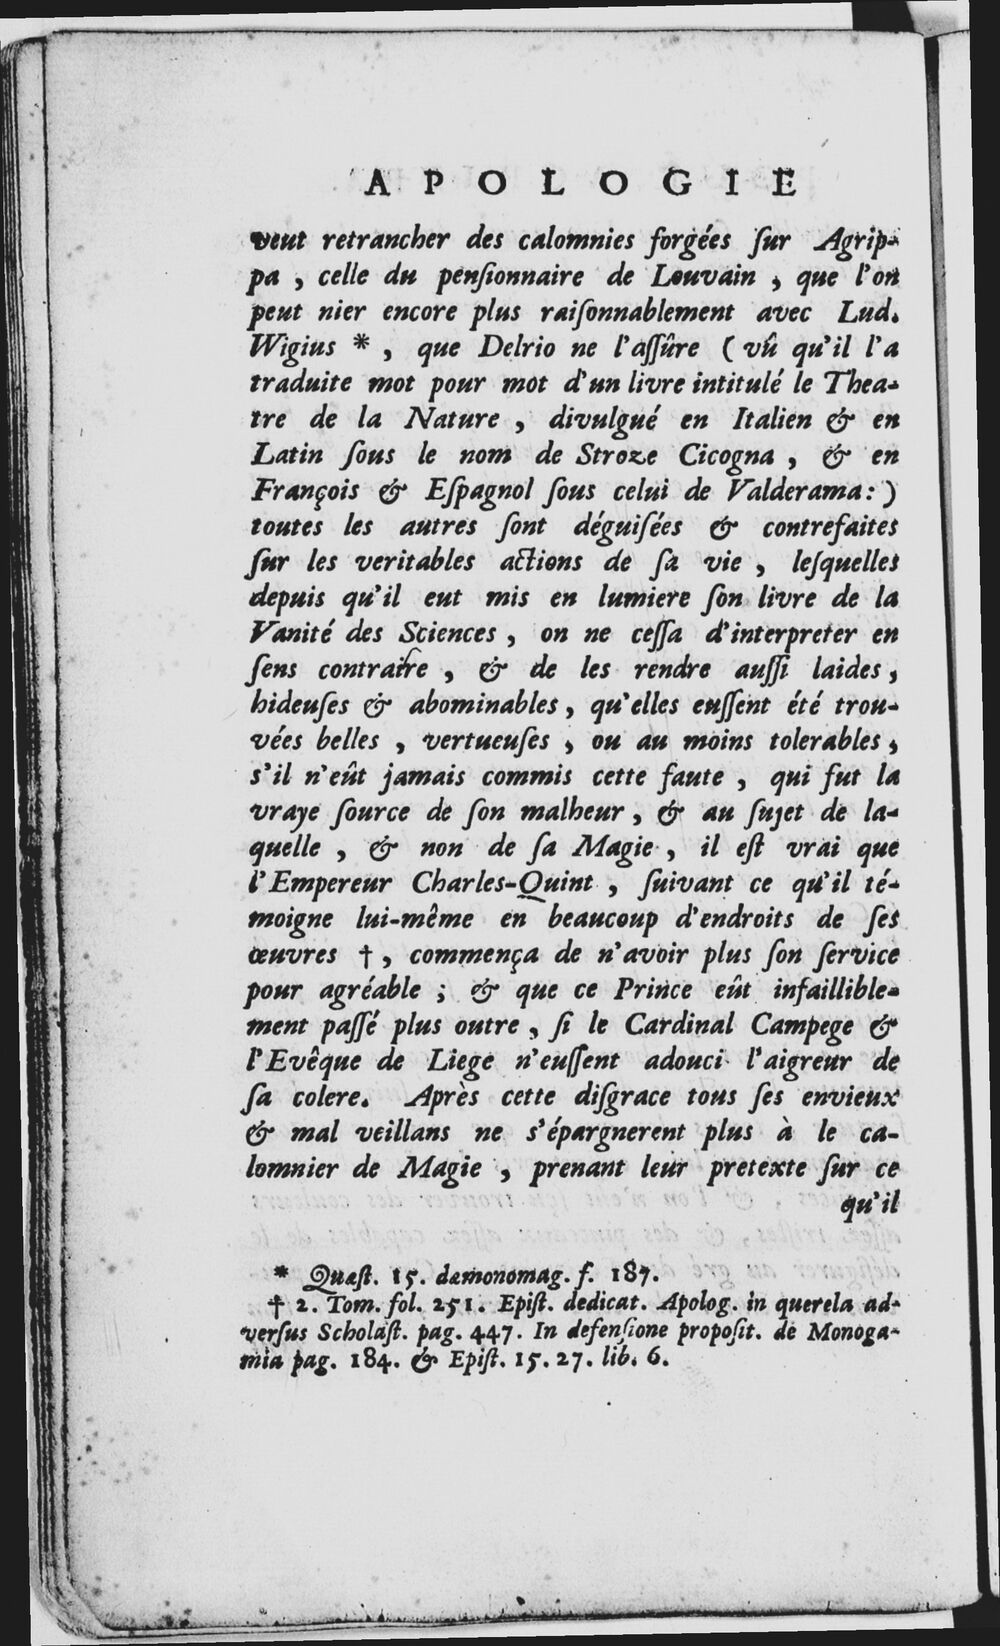 APOLOGIE
veut retrancher des calomnies forgées ſur Agrip-
pa, celle du penſionnaire de Louvain, que l'on
peut nier encore plus raiſonnablement avec Lud.
Wigius *, que Delrio ne l'aſſûre (vû qu'il l'a
traduite mot pour mot d'un livre intitulé le Thea-
tre de la Nature, divulgué en Italien & en
Latin ſous le nom de Stroze Cicogna, & en
François & Eſpagnol ſous celui de Valderama:)
toutes les autres ſont déguiſées & contrefaites
ſur les veritables actions de ſa vie, leſquelles
depuis qu'il eut mis en lumiere ſon livre de la
Vanité des Sciences, on ne ceſſa d'interpreter en
ſens contraire, & de les rendre auſſi laides,
hideuſes & abominables, qu'elles euſſent été trou-
vées belles, vertueuſes, ou au moins tolerables,
s'il n'eût jamais commis cette faute, qui fut la
vraye ſource de ſon malheur, & au ſujet de la-
quelle, & non de ſa Magie, il eſt vrai que
l'Empereur Charles-Quint, ſuivant ce qu'il té-
moigne lui-même en beaucoup d'endroits de ſes
œuvres †, commença de n'avoir plus ſon ſervice
pour agréable; & que ce Prince eût infaillible-
ment paſſé plus outre, ſi le Cardinal Campege &
l'Evêque de Liege n'euſſent adouci l'aigreur de
ſa colere. Après cette diſgrace tous ſes envieux
& mal veillans ne s'épargnerent plus à le ca-
lomnier de Magie, prenant leur pretexte ſur ce
qu'il
* Quæſt. 15. dæmonomag. f. 187.
† 2. Tom. fol. 251. Epiſt. dedicat. Apolog. in querela ad-
verſus Scholaſt. pag. 447. In defenſione propoſit. de Monoga-
mia pag. 184. & Epiſt. 15. 27. lib. 6.